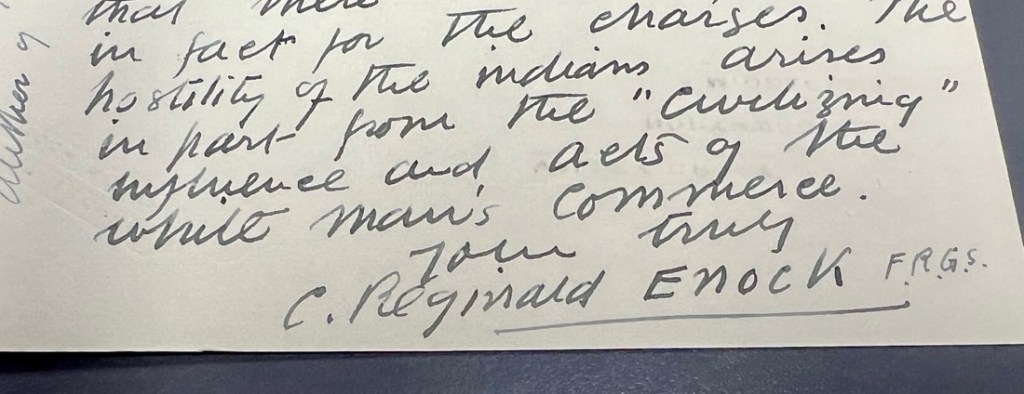 that there
in fact for the charges. The
hostility of the indians arises
in part from the "civilizing"
influence and acts of the
white man's commerce.
Yours truly
C. Reginald ENOCK F.R.G.S.
author of